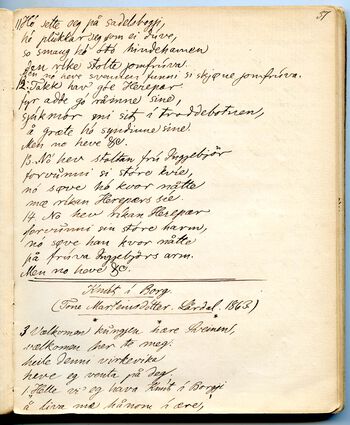 57
11. Hó sette seg på sadelbogji,
hó plukkar seg som ei duve,
so smaug hó ótó hindehamen
den rike stolte jomfrúva.
Men nó heve svennen funni si skjøne jomfrúva.
12. Takk hav goe Herepar
fyr adde gó råmne sine,
stjukmor mi sit i
å græte hó syndinne sine.
Men no heve &c.
13. No hev stoltan frú Inggebjör
forvunni si store kvie,
nó søve hó kvor nåtte
mæ rikan Herepærs sie
14. No hev rikan Herepær
forvunni sin store harm,
nó søve han kvor nåtte
på frúva Inggebjørs arm.
Men no heve &c.
Knút i Borg.
(Tone Martensditter. 1863)
3 Vælkomen kúngjen hære Sveinen,
vælkomen her te meg.
heile denni virkevika
heve eg venta på deg.
1 Hette vi eg hava Knút i Borgji
å liva mæ hånom i ære,